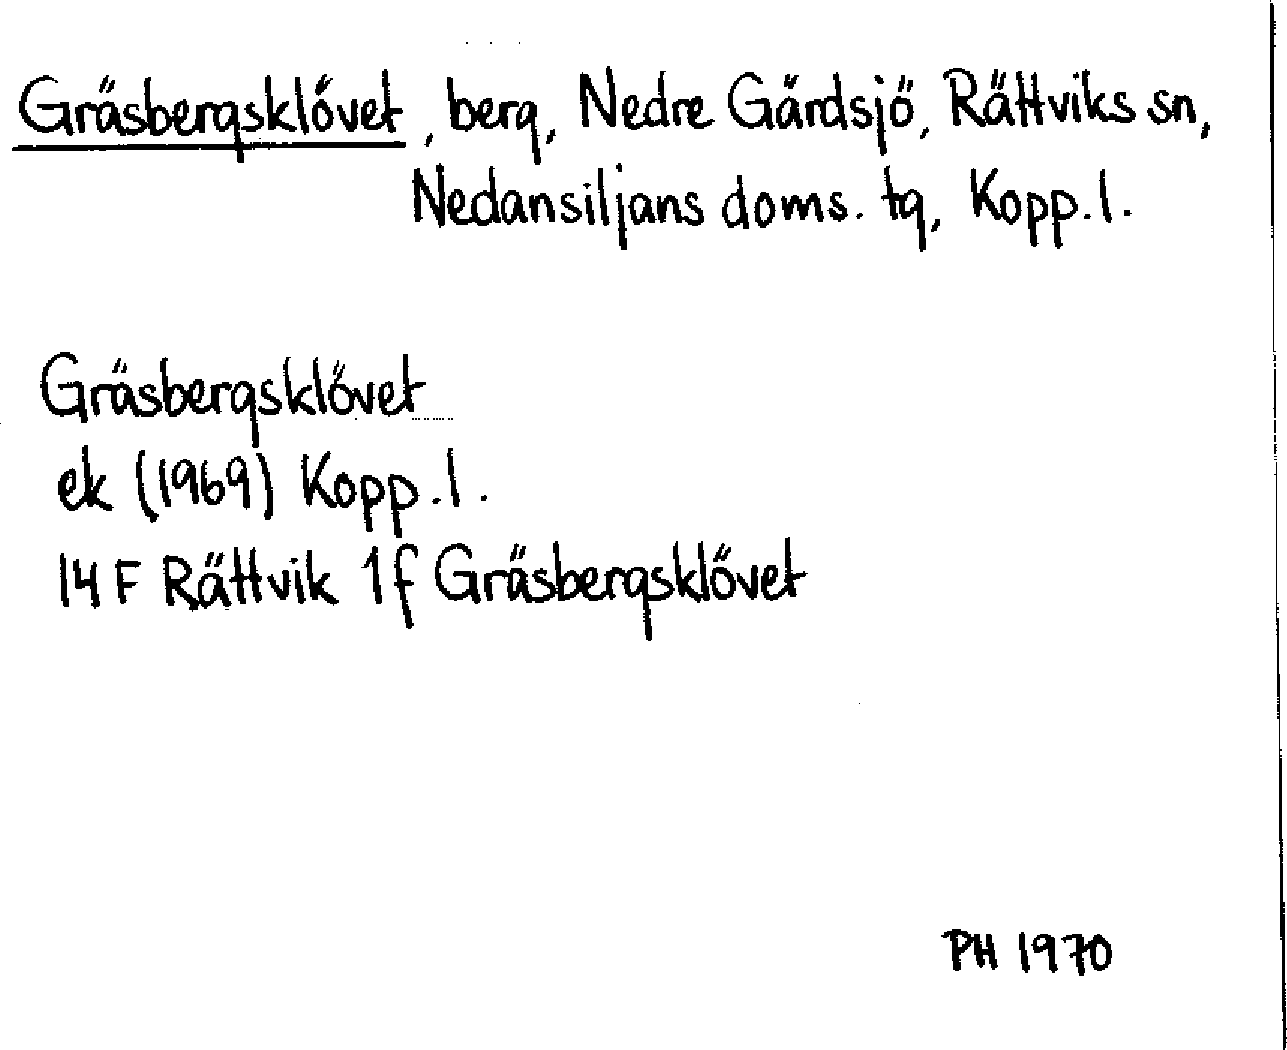 Gräsbergsklövet, berg, Nedre Gärdsjö, Rättviks sn,
Nedansiljans doms. tg, Kopp. l.
Gräsbergsklövet
ek (1969) Kopp. l.
14 F Rättvik 1f Gräsbergsklövet
PH 1970